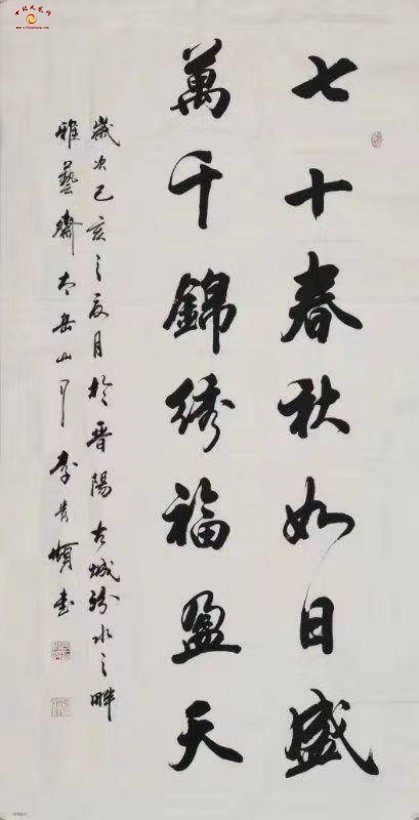 七十春秋如日盛
萬千錦綉福盈天
歲次己亥之夏月於晋陽古城汾水之畔
雅藝齋太岳山李書